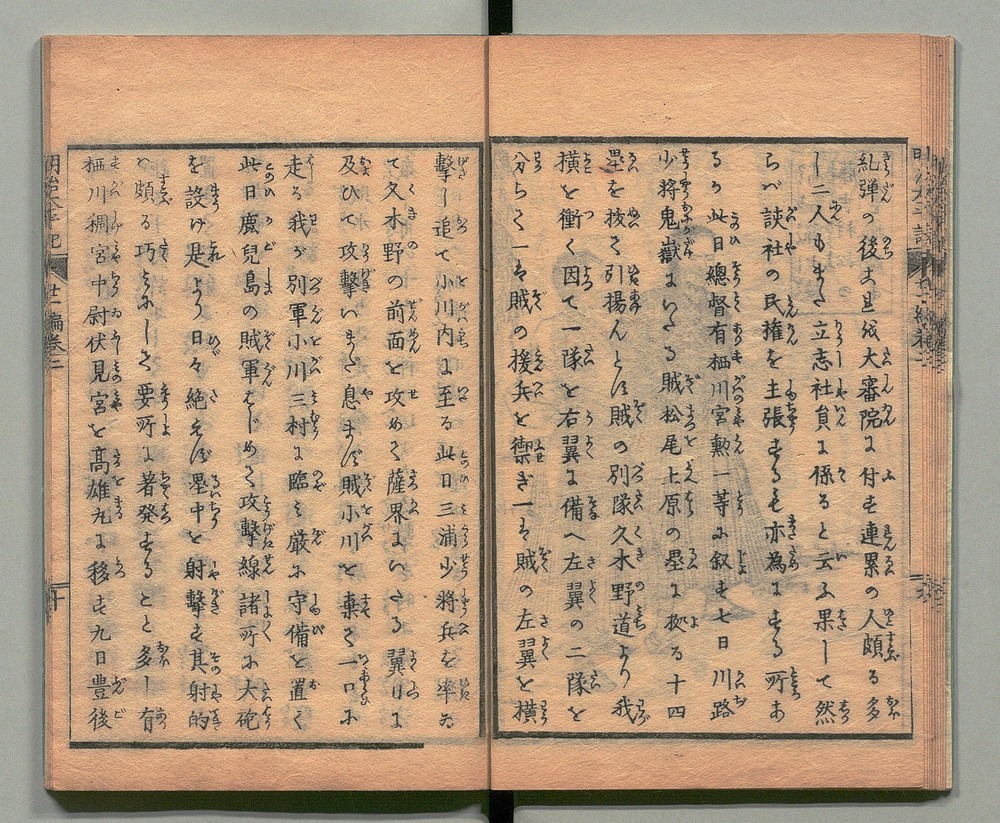 糺弾の後これを大審院に付す連累の人頗る多
し二人もまた立志社員に係ると云ふ果して然
らバ該社の民権を主張するも亦為にする所あ
るか此日總督有栖川宮勲一等に叙す七日川路
少将鬼嶽にいたる賊松尾上原の塁に拠る十四
塁を抜て引揚んとす賊の別隊久木野道より我
横を衝く因て一隊を右翼に備へ左翼の二隊を
分ちて一は賊の援兵を禦ぎ一は賊の左翼を横
撃し追て小川内に至る此日三浦少将兵を率ゐ
て久木野の前面を攻めて薩界にいたる翼日に
及びて攻撃いまだ息まず賊小川を棄て一口に
走る我が別軍小川三村に臨み厳に守備を置く
此日鹿児島の賊軍はじめて攻撃線諸所に大砲
を設け是より日々絶えず塁中を射撃す其射的
頗る巧みにして要所に著発すること多し有
栖川稠宮中尉伏見宮を高雄丸に移す九日豊後
明治太平記
廿一編巻二
十